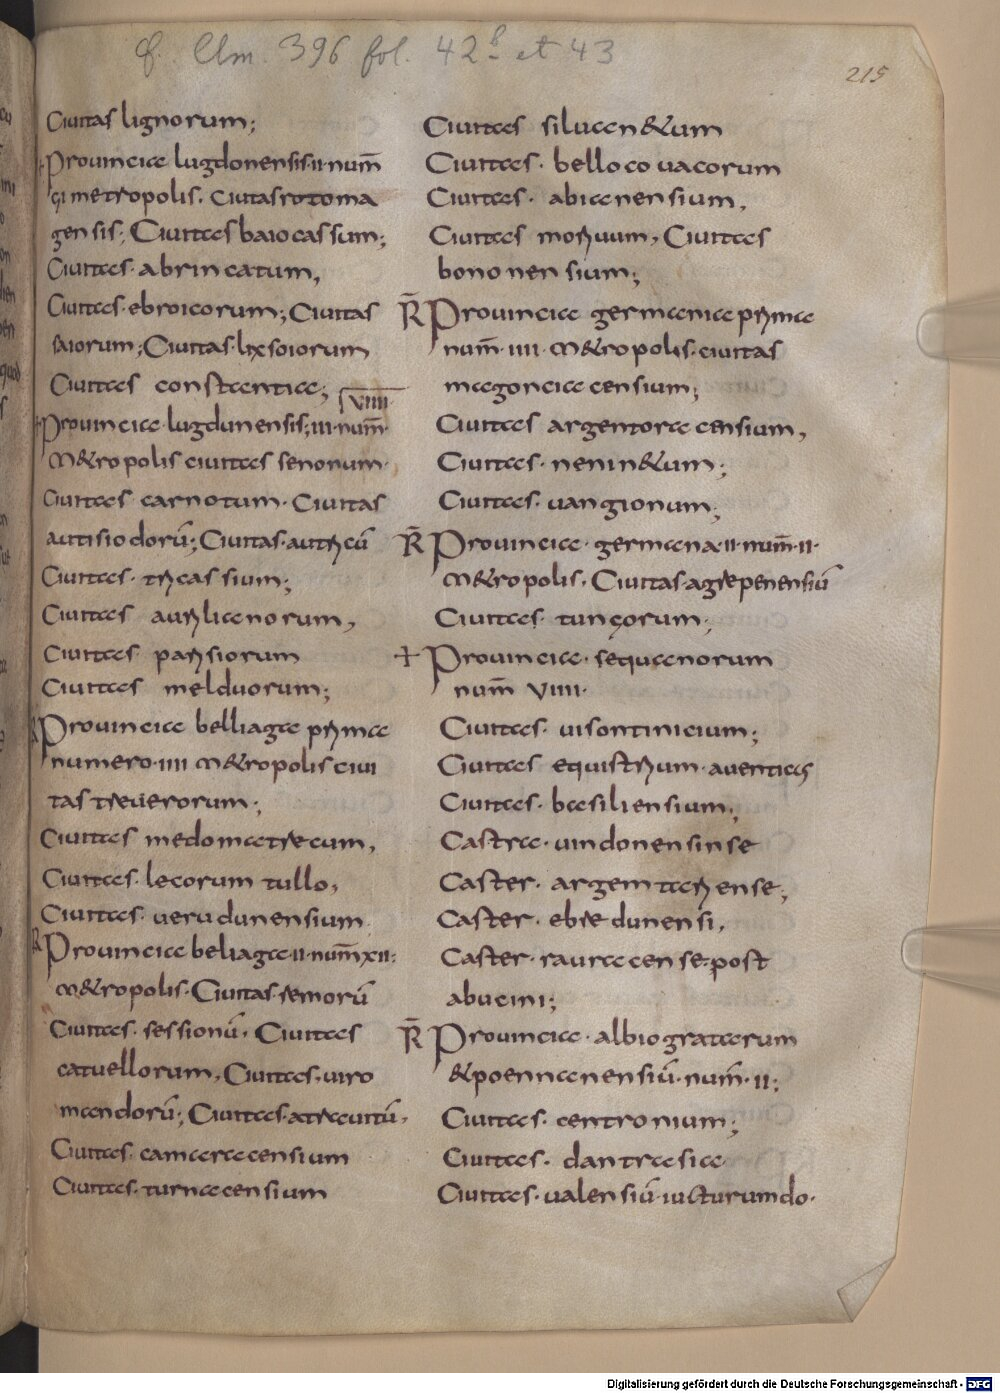 cf. Clm. 396 fol. 42b et 43
215
Ciuitas lignorum;
Prouinciae lugdonensis·ii·num̄
çi metropolis. Ciuitas rotoma
gensis; Ciuitas baiocassum;
Ciuitas·abrincatum,
Ciuitas·ebroicorum; Ciuitas
saiorum; Ciuitas·lixsoiorum
Ciuitas constantiae;
VIIII·
Prouinciae·lugdunensis; iii·num̄·
M&ropolis ciuitas senonum·
Ciuitas carnotum· Ciuitas
autisiodorū; Ciuitas·autricū
Ciuitas· tricassium;
Ciuitas aurilianorum,
Ciuitas parisiorum
Ciuitas melduorum;
Prouinciae belliagae primae
numero·iiii M&ropolis ciui
tas treuerorum;
Ciuitas medomatrecum,
Ciuitas·lecorum tullo,
Ciuitas·uerudunensium
Prouinciae beliagae·ii·num̄ xii:
M&ropolis·Ciuitas·remorū
Ciuitas·sessionū. Ciuitas
catuellorum, Ciuitas·uiro
mandorū; Ciuitas·atrauitū,
Ciuitas·camaracensium
Ciuitas·turnacensium
Ciuitas siluan&um
Ciuitas· bellocouacorum
Ciuitas· abianensium,
Ciuitas moriuum, Ciuitas
bononensium;
R̄ Prouinciae germaniae primae
num̄·iiii·M&ropolis·ciuitas
magonciacensium;
Ciuitas argentoracensium,
Ciuitas·nenin&um;
Ciuitas·uangionum;
R̄ Prouinciae·germana·ii·num̄·ii·
M&ropolis. Ciuitas·agrepenensiū
Ciuitas· tunçorum;
+ Prouinciae·sequanorum
num̄ VIIII·
Ciuitas·uisontinicium;
Ciuitas equistrium·auenticus
Ciuitas·basiliensium;
Castra·uindonensinse
Caster· argemtariense;
Caster·ebredunensi,
Caster·rauracense:post
abucini;
R̄ Prouinciae·albiogratarum
&poennanensiū·num̄·ii:
Ciuitas·centronium;
Ciuitas·dantrasia
Ciuitas·ualensiū·iucturumdo·
Digitalisierung gefördert durch die Deutsche Forschungsgemeinschaft - DFG